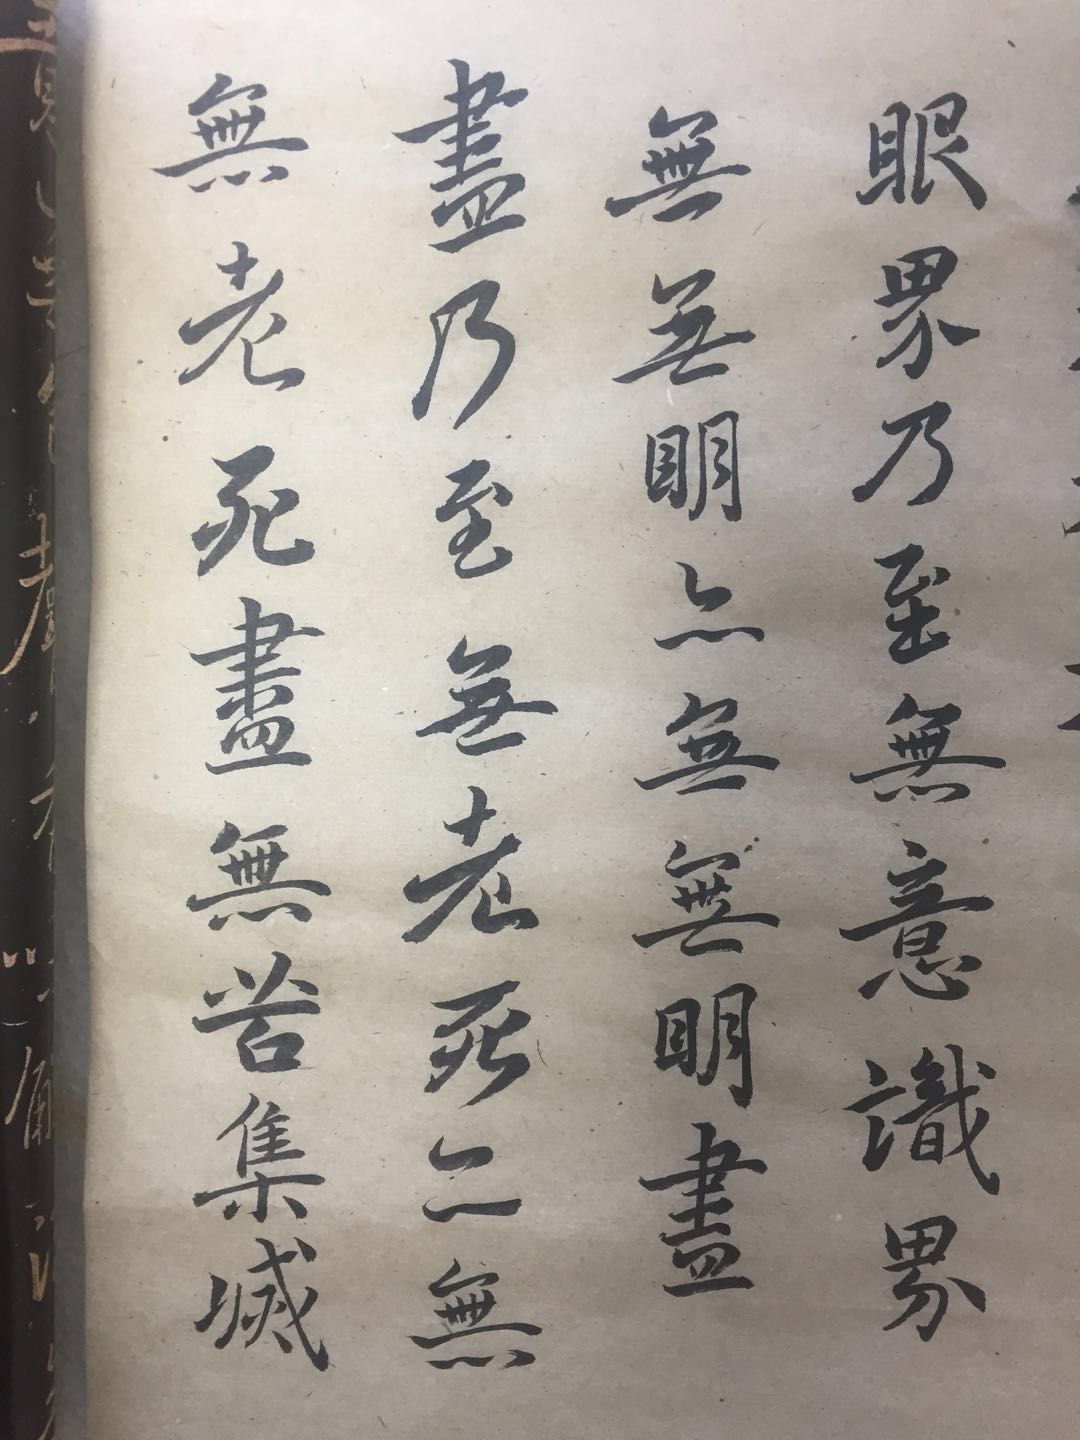 眼界乃至無意識界
無無明亦無無明盡
盡乃至無老死亦無
無老死盡無苦集滅